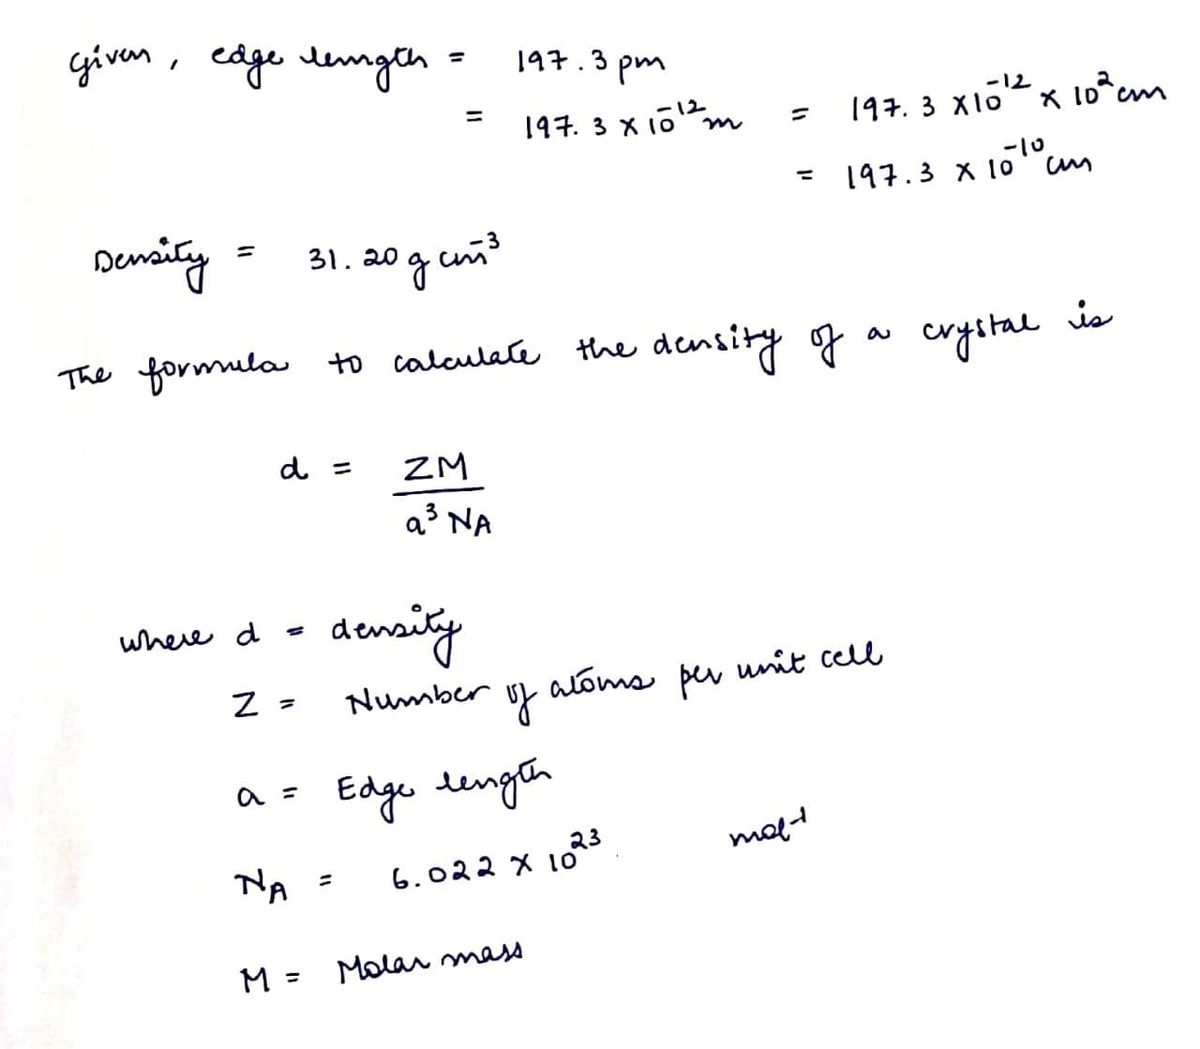 Given, edge length = 197.3 pm
= 197.3 × 10⁻¹² m = 197.3 × 10⁻¹² × 10² cm
= 197.3 × 10⁻¹⁰ cm
Density = 31.20 g cm⁻³
The formula to calculate the density of a crystal is
d = ZM / a³ NA
where d = density
Z = Number of atoms per unit cell
a = Edge length
NA = 6.022 × 10²³ mol⁻¹
M = Molar mass